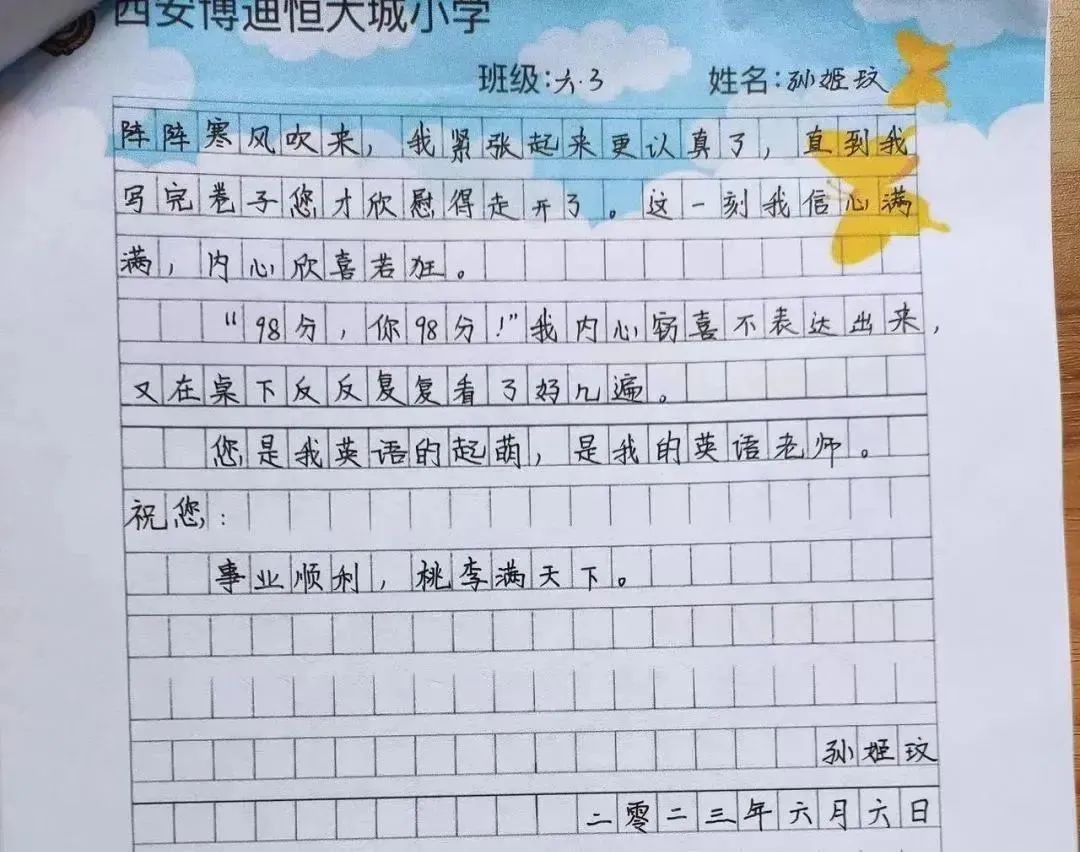 西安博迪恒大城小学
班级:六.3 姓名:孙姬玟
阵阵寒风吹来，我紧张起来更认真了，直到我
写完卷子您才欣慰得走开了。这一刻我信心满
满，内心欣喜若狂。
“98分，你98分！”我内心窃喜不表达出来，
又在桌下反反复复看了好几遍。
您是我英语的起萌，是我的英语老师。
祝您：
事业顺利，桃李满天下。
孙姬玟
二零二三年六月六日